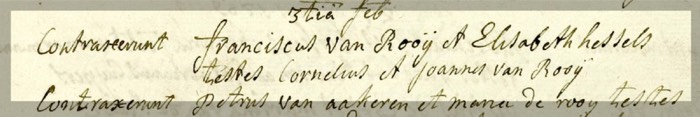 3tiä feb
Contraxerunt franciscus van Rooÿ et Elisabeth hessels
testes Cornelius et Joannes van Rooÿ
Contraxerunt petrus van aakeren et maria de rooy testes